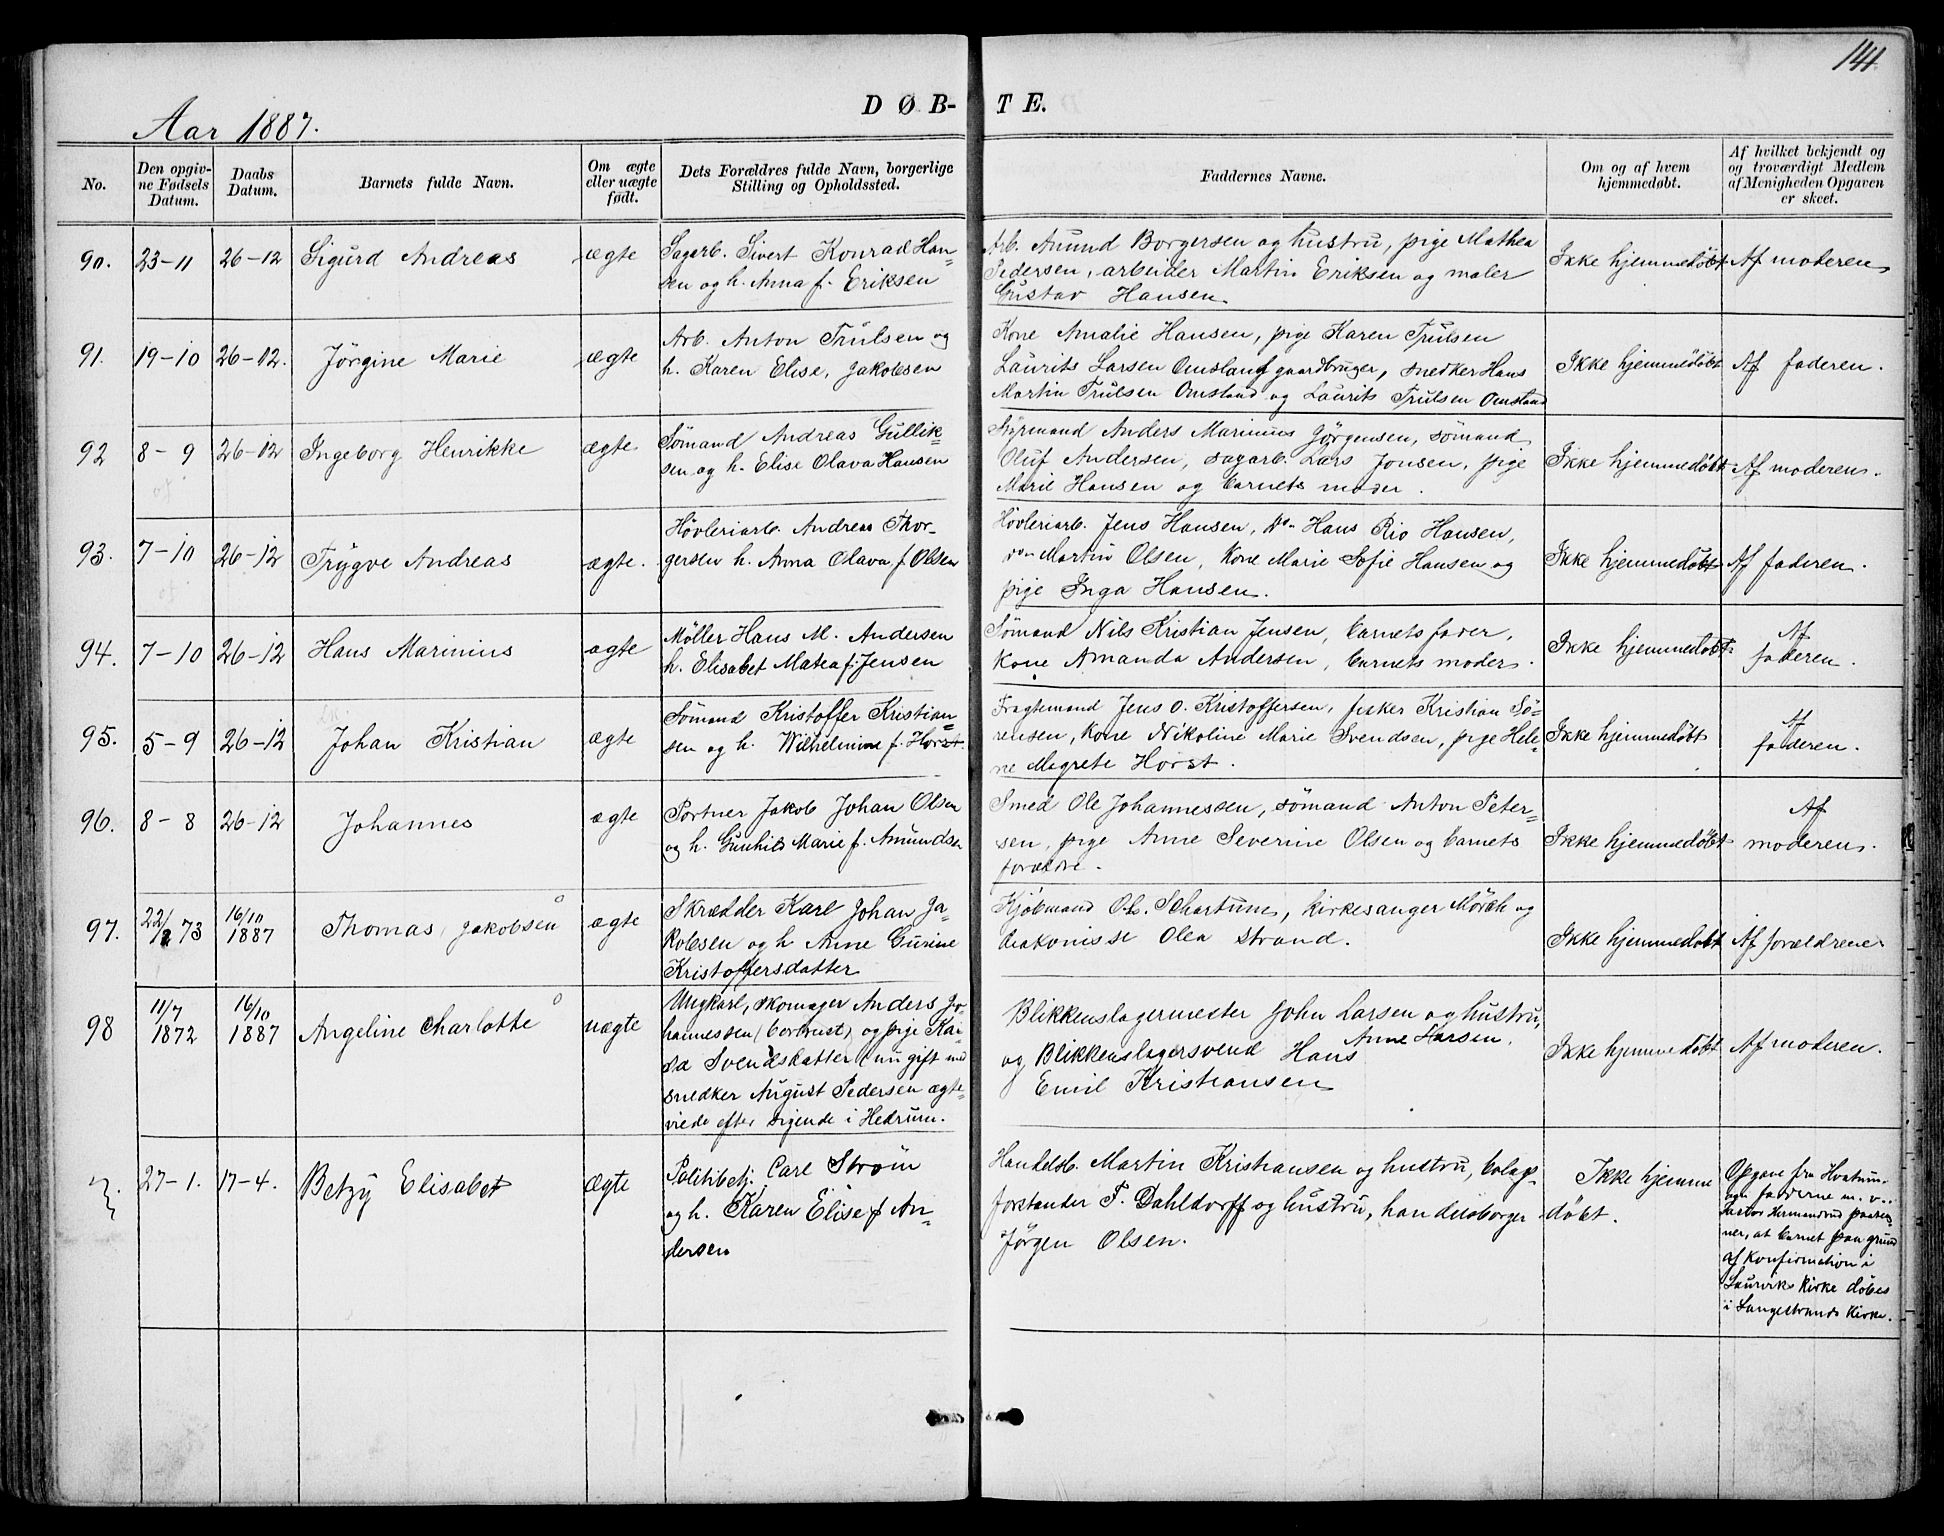 141
DØB-TE.
Aar 1887.
No.
Den opgiv-
ne Fødsels
Datum.
Daabs
Datum.
Barnets fulde Navn.
Om ægte
eller uægte
født.
Dets Forældres fulde Navn, borgerlige
Stilling og Opholdssted.
Faddernes Navne.
Om og af hvem
hjemmedøbt.
Af hvilket bekjendt og
og troværdigt Medlem
af Menigheden Opgaven
er skeet.
90.
23-11
26-12
Sigurd Andreas
ægte
Sagarb. Sivert Konrad Han=
sen og h. Anna f. Eriksen
Arb. Amund Borgersen og hustru, pige Mathea
Pedersen, arbeider Martin Eriksen og maler
Gustav Hansen.
Ikke hjemmedøbt
Af moderen
91.
19-10
26-12.
Jörgine Marie
ægte
Arb. Anton Trulsen og
h. Karen Elise, Jakobsen
Kone Amalie Hansen, pige Karen Trulsen
Laurits Larsen Omsland gaardbruger, snedker Hans
Martin Trulsen Omsland og Laurits Trulsen Omsland
Ikke hjemmedöbt
Af faderen.
92
8-9
26-12
Ingeborg Henrikke
ægte
Sømand Andreas Gullik=
sen og h. Elise Olava Hansen
Styrmand Anders Marinius Jörgensen, sömand
Oluf Andersen, sagarb. Lars Jonsen, pige
Marie Hansen og barnets moder.
Ikke hjemmedøbt
Af moderen.
93.
7-10
26-12
Trygve Andreas
ægte.
Høvleriarb. Andreas Thor-
gersen h. Anna Olava f. Olsen
Høvleriarb. Jens Hansen, do. Hans Rio Hansen,
do. Martin Olsen, Kone Marie Sofie Hansen og
pige Inga Hansen.
Ikke hjemmedøbt
Af faderen.
94.
7-10
26-12
Hans Marinius
ægte
Møller Hans M. Andersen
h. Elisabet Matea f. Jensen
Sømand Nils Kristian Jensen, barnets fader,
Kone Amanda Andersen, barnets moder.
Ikke hjemmedøbt
Af
faderen.
95.
5-9
26-12
Johan Kristian
ægte
Sømand Kristoffer Kristian=
sen og h. Wilhelmine f. Horst.
Fragtemand Jens O. Kristoffersen, fisker Kristian Sö=
rensen, Kone Nikoline Marie Svendsen, pige Hele=
ne Magrete Horst.
Ikke hjemmedöbt
Af
faderen.
96.
8-8
26-12
Johannes
ægte
Portner Jakob Johan Olsen
og h. Gunhild Marie f. Amundsen
Smed Ole Johannessen, sömand Anton Peter=
sen, pige Anne Severine Olsen og barnets
forældre.
Ikke hjemmedöbt
Af
moderen.
97.
73
16/10
1887
Thomas, Jakobsen
ægte
Skrædder Karl Johan Ja=
kobsen og h Anne Gurine
Kristoffersdatter
Kjöbmand Schartum, kirkesanger Mörch og
diakonisse Olea Strand.
Ikke hjemmedøbt
Af forældrene
98
11/7
1872
16/10
1887
Angeline Charlotte
uægte
Ungkarl, skomager Anders Jo-
hannessen (bortreist) og pige Kai=
sa Svendsdatter (nu gift med
snedker August Pedersen ægte=
viede efter sigende i Hedrum.
Blikkenslagermester John Larsen og hustru,
Anne Larsen,
og Blikkenslagersvend Hans
Emil Kristiansen
Ikke hjemmedøbt
Af moderen.
27-1.
17-4.
Betzy Elisabet
ægte
Politibetj. Carl Strøm
og h. Karen Elise f An=
dersen
Handelsb. Martin Kristiansen og hustru, bolags=
forstander F. Dahldorff og hustru, handelsborger
Jörgen Olsen.
Ikke hjemme
döbt.
Opgave fra
fadderne m. v..
Pastor
ner, at barnet paa grund
af Konfirmation i
Laurviks Kirke döbes
i Langestrands Kirke.